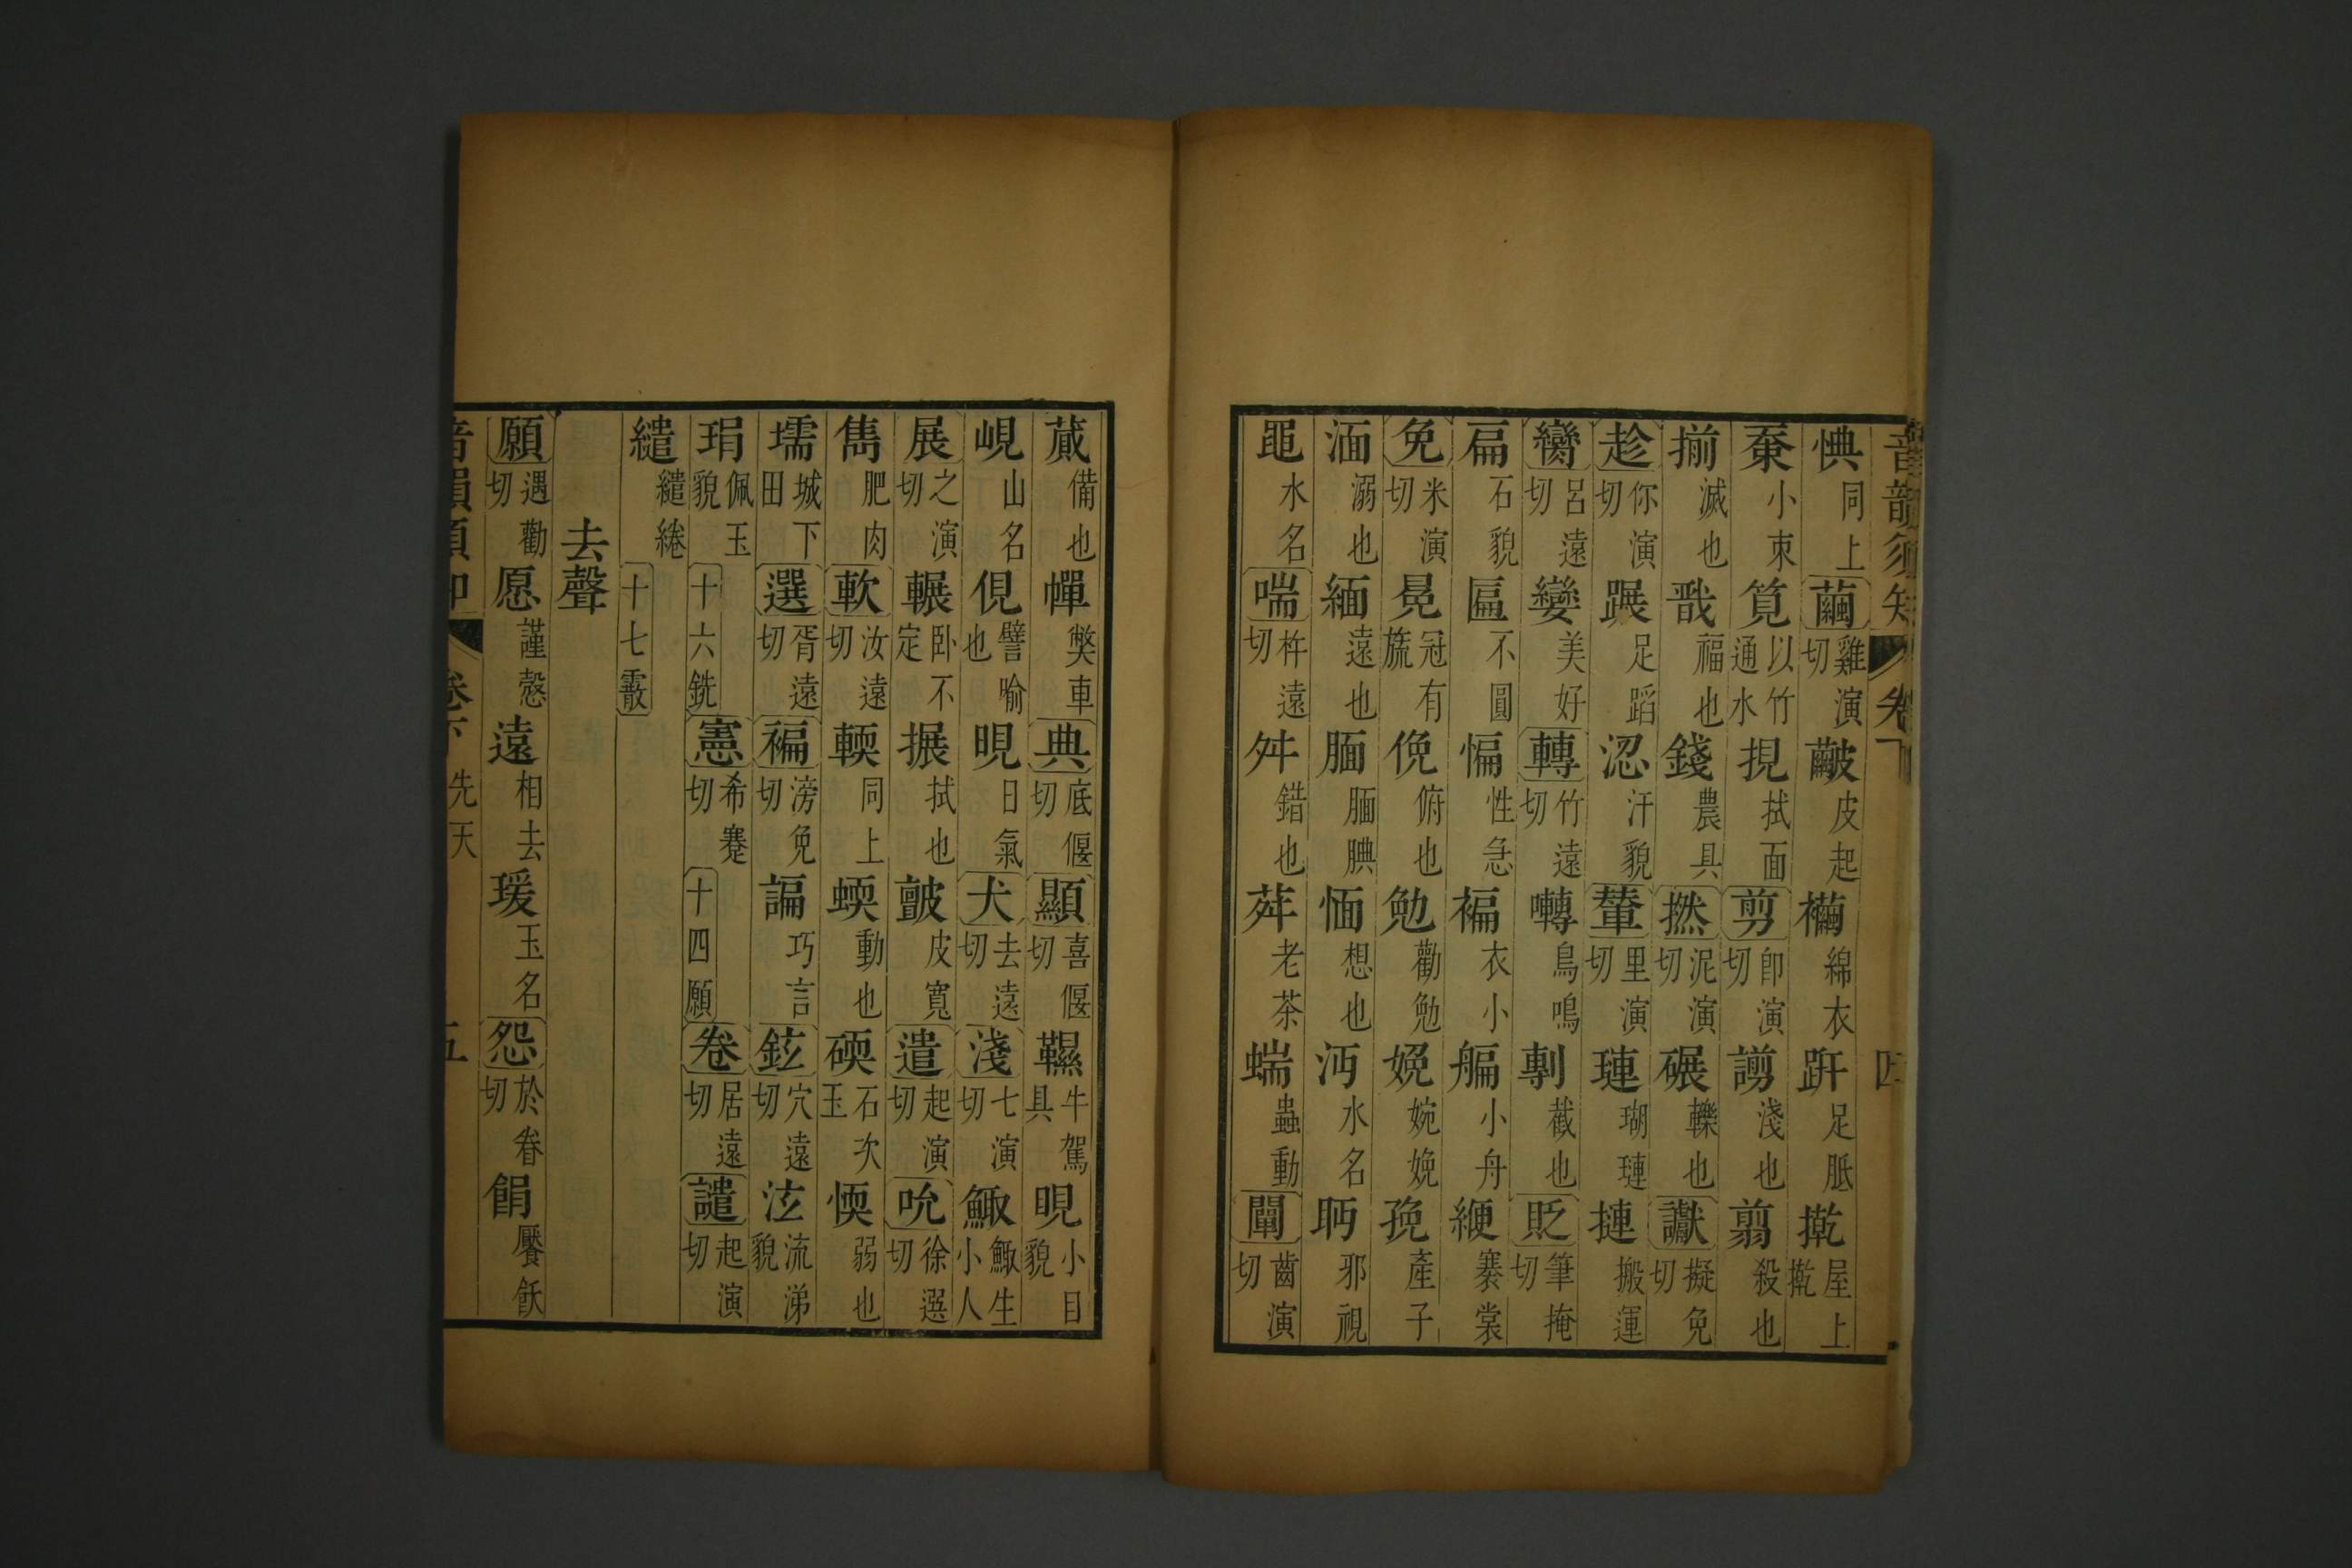 音韻須知 卷下 四
㥏同上繭雞演切皽皮起襺綿衣趼足胝㨴屋上㨴
𣓨小束筧以竹通水挸拭面剪卽演切謭淺也翦殺也
揃滅也戩福也錢農具撚泥演切碾轢也讞擬免切
趁你演切蹍足蹈涊汗貌輦里演切璉瑚璉摙搬運
臠呂遠切孌美好轉竹遠切囀鳥鳴剸截也貶筆掩切
扁石貌匾不圓惼性急褊衣小艑小舟緶褰裳
免米演切冕冠有旒俛俯也勉勸勉娩婉娩㝃產子
湎溺也緬遠也腼腼腆愐想也沔水名眄邪視
黽水名喘杵遠切舛錯也荈老茶蝡蟲動闡齒演切
蕆備也幝獘車典底偃切顯喜偃切韅牛駕具睍小目貌
峴山名俔譬喻也晛日氣犬去遠切淺七演切鯫鯫生小人
展之演切輾卧不定搌拭也皽皮寬遣起演切吮徐選切
雋肥肉軟汝遠切輭同上蝡動也碝石次玉愞弱也
壖城下田選胥遠切褊滂免切諞巧言鉉穴遠切泫流涕貌
琄佩玉貌十六銑憲希蹇切十四願卷居遠切譴起演切
繾繾綣十七霰
去聲
願遇勸切愿謹慤遠相去瑗玉名怨於眷切餶饜飫
音韻須知 卷下 先天 五